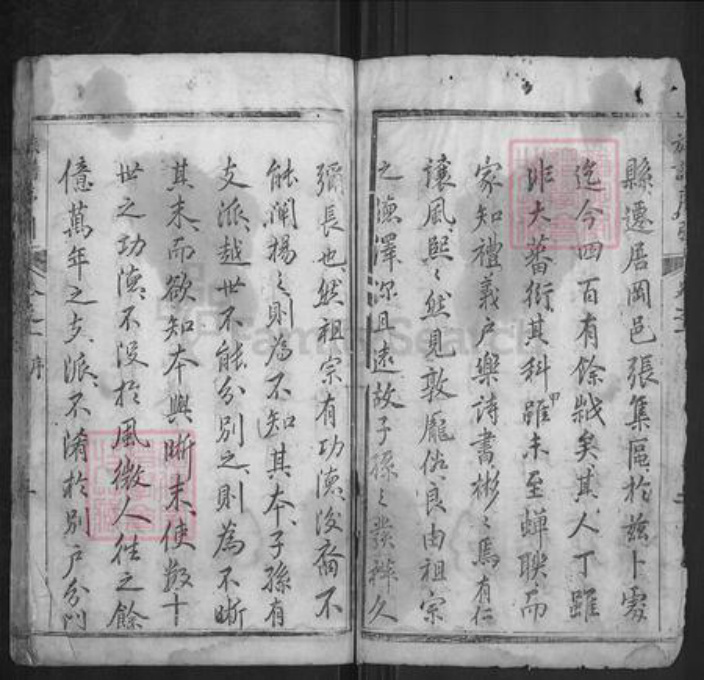 縣遷居岡邑張集區於玆卜處
迄今四百有餘嵗矣其人丁雖
非大蕃衍其科甲雖未至蟬聯而
家知禮義户樂詩書彬〻焉有仁
讓風熙〻然見敦龐俗良由祖宗
之德澤深且遠故子孫〻發祥久
彌長也然祖宗有功德後裔不
能闡揚〻則為不知其本子孫有
支派越世不能分別之則為不晰
其末而欲知本與晰末使數十
世之功德不没於風微人徃之餘
億萬年之支派不淆於別户分门
序
FamilySearch